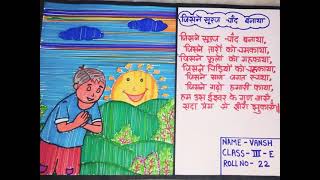 जिसने सूरज चाँद बनाया
जिसने सूरज चाँद बनाया,
जिसने तारों को चमकाया,
जिसने फूलों को महकाया,
जिसने चिड़ियों को चहकाया,
जिसने सारा जगत रचाया,
जिसने गढ़ी हमारी काया,
हम उस ईश्वर के गुण गाएँ,
सदा प्रेम से शीश झुकाएँ।
NAME - VANSH
CLASS - III - E
ROLL NO - 22